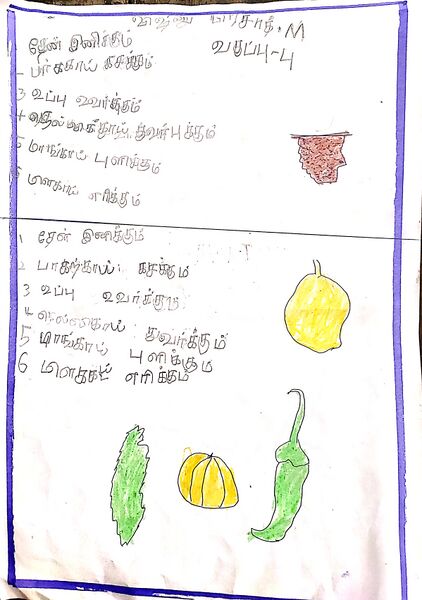 பிரசாத்.M
வகுப்பு-பு
1 தேன் இனிக்கும்
2 பாககாய் கசக்கும்
3 உப்பு உவர்க்கும்
4 துவர்புக்கும்
5 மாங்காய் புளிக்கும்
6 மிளகாய் எரிக்கும்
1 தேன் இனிக்கும்
2 பாகற்காய் கசக்கும்
3 உப்பு உவர்க்கும்
4 துவர்க்கும்
5 மாங்காய் புளிக்கும்
6 மிளகாய் எரிக்கும்